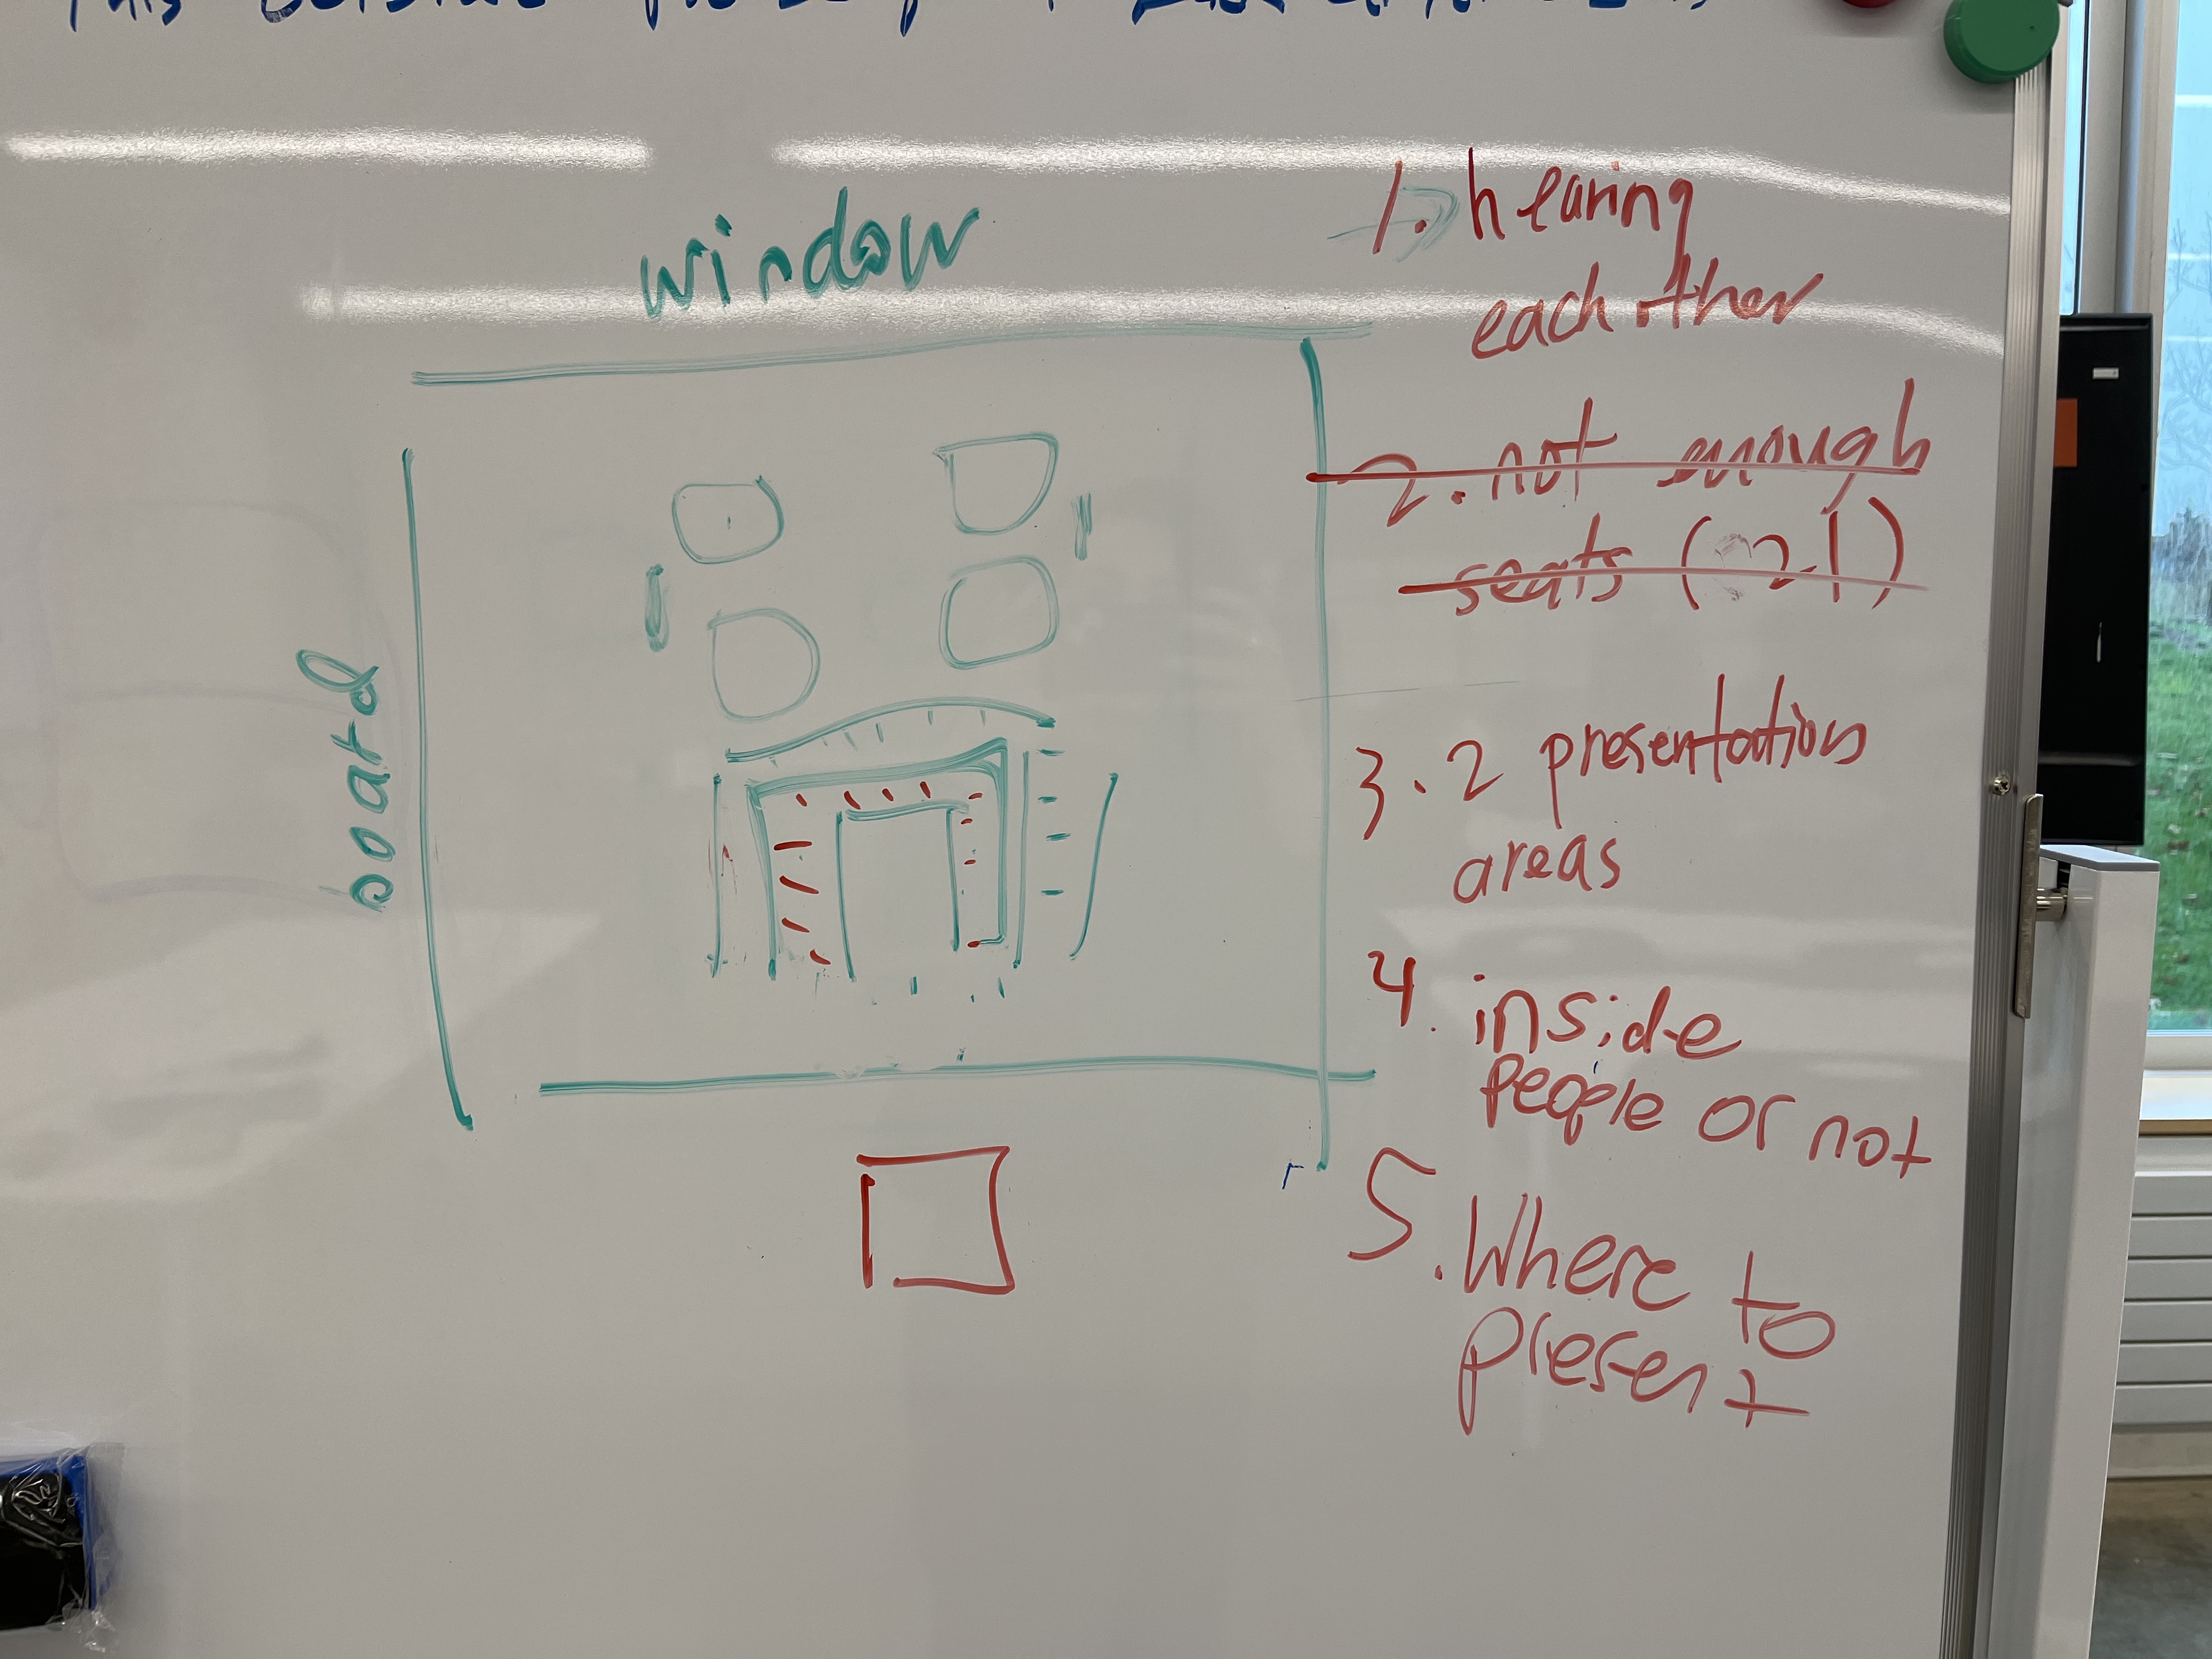 This
window
board
1. hearing
each other
2. not enough
seats (21)
3. 2 presentation
areas
4. inside
people or not
5. Where to
present